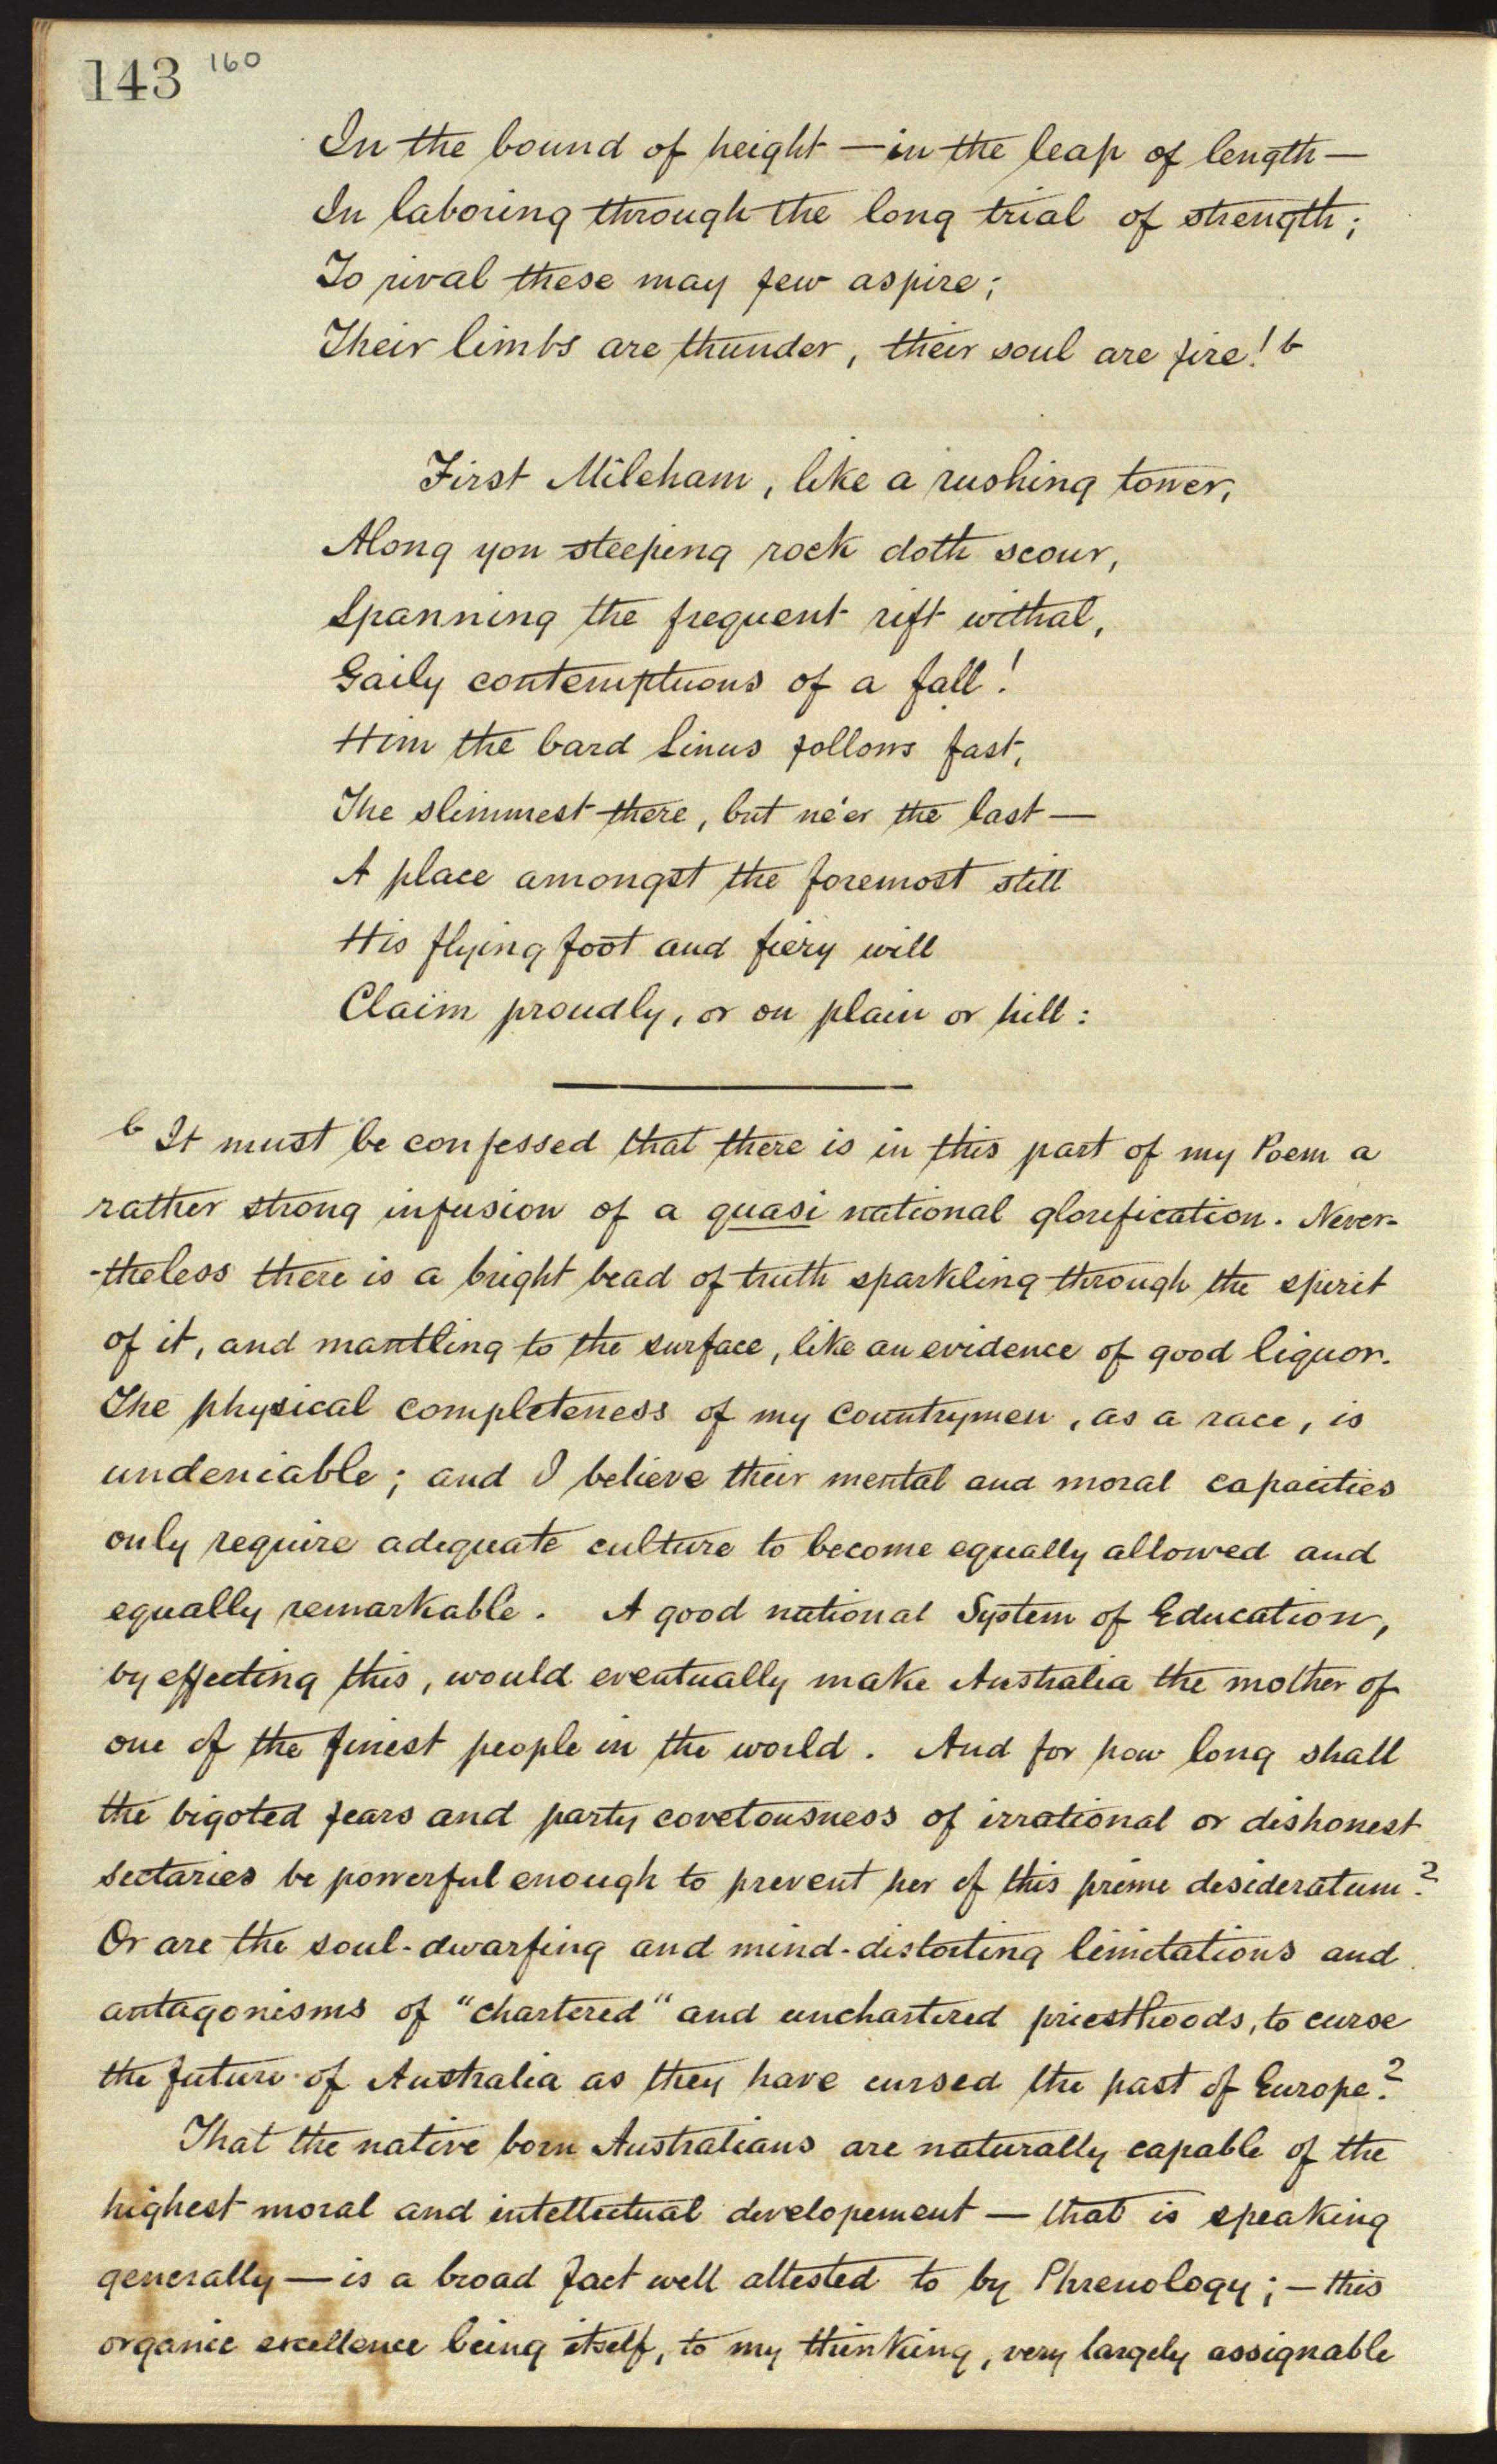 143 160
In the bound of height — in the leap of length —
In laboring through the long trial of strength;
To rival these may few aspire;
Their limbs are thunder, their soul are fire! b
First Mileham, like a rushing tower,
Along yon steeping rock doth scour,
Spanning the frequent rift withal,
Gaily contemptuous of a fall!
Him the bard Linus follows fast,
The slimmest there, but ne'er the last —
A place amongst the foremost still
His flying foot and fiery will
Claim proudly, or on plain or hill:
b It must be confessed that there is in this part of my Poem a
rather strong infusion of a quasi national glorification. Never-
-theless there is a bright bead of truth sparkling through the spirit
of it, and mantling to the surface, like an evidence of good liquor.
The physical completeness of my countrymen, as a race, is
undeniable; and I believe their mental and moral capacities
only require adequate culture to become equally allowed and
equally remarkable. A good national System of Education,
by effecting this, would eventually make Australia the mother of
one of the finest people in the world. And for how long shall
the bigoted fears and party covetousness of irrational or dishonest
sectaries be powerful enough to prevent her of this prime desideratum?
Or are the soul-dwarfing and mind-distorting limitations and
antagonisms of "chartered" and unchartered priesthoods, to curse
the future of Australia as they have cursed the past of Europe?
That the native born Australians are naturally capable of the
highest moral and intellectual developement — that is speaking
generally — is a broad fact well attested to by Phrenology; — this
organic excellence being itself, to my thinking, very largely assignable